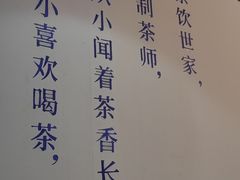 饮世家，
制茶师，
小闻着茶香长
小喜欢喝茶，